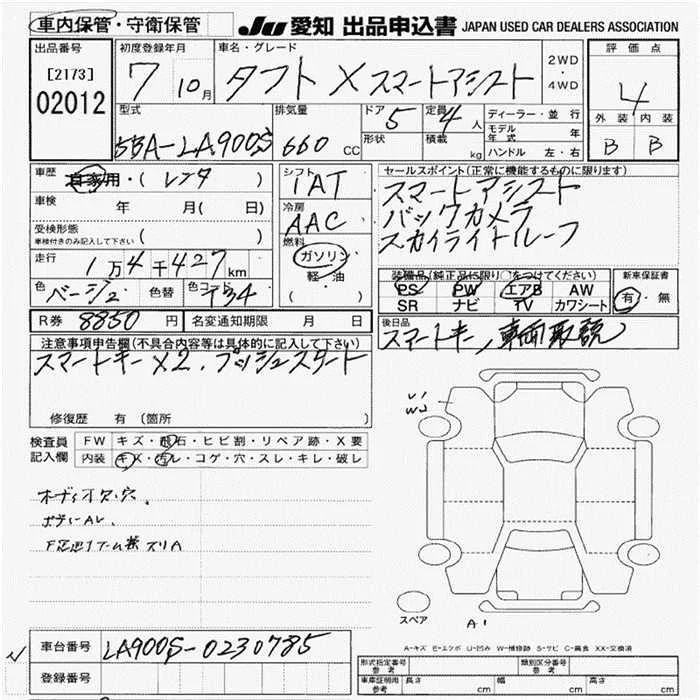 車内保管・守衛保管 JU 愛知 出品申込書 JAPAN USED CAR DEALERS ASSOCIATION
出品番号 初度登録年月 車名・グレード 評価点
[2173] 7 10月 タフト X スマートアシスト 2WD・4WD 4
02012
型式 排気量 ドア 5 定員 4人 ディーラー・並行 外装 内装
モデル年式 年
5BA-LA900S 660 CC 形状 積載 kg ハンドル 左・右 B B
車歴 自家用・(レンタ) シフト セールスポイント(正常に機能するものに限ります)
1AT スマートアシスト
車検 年 月( 日) 冷房 バックカメラ
AAC スカイライトルーフ
受検形態 ( )
車検付きのみ記入して下さい
燃料
走行 1万4千427km ガソリン 装備品(純正品に限り○をつけてください) 新車保証書
軽・油
( ) PS PW エアB AW 有・無
色 ベージュ 色替 色コード T34 SR ナビ TV カワシート
R券 8850円 名変通知期限 月 日 後日品
スマートキー、車両取説
注意事項申告欄(不具合内容等は具体的に記入して下さい)
スマートキーX2. プッシュスタート
修復歴 有 (箇所
検査員 FW キズ・飛石・ヒビ割・リペア跡・X要
記入欄 内装 キズ・汚レ・コゲ・穴・スレ・キレ・破レ
U1
W2
オーディオ欠・穴.
ボディーAU.
スリA
スペア A1
A-キズ E-エクボ U-凹み W-補修跡 S-サビ C-腐食 XX-交換済
車台番号 LA900S-0230785
登録番号
形式指定番号 参考 類別区分番号 参考
車庫証明用 参考 長さ cm 幅 cm 高さ cm